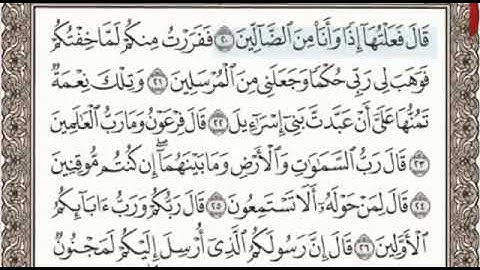 قَالَ فَعَلْتُهَآ إِذًا وَأَنَا۠ مِنَ ٱلضَّآلِّينَ ٢٠ فَفَرَرْتُ مِنكُمْ لَمَّا خِفْتُكُمْ
فَوَهَبَ لِى رَبِّى حُكْمًا وَجَعَلَنِى مِنَ ٱلْمُرْسَلِينَ ٢١ وَتِلْكَ نِعْمَةٌ
تَمُنُّهَا عَلَىَّ أَنْ عَبَّدتَّ بَنِىٓ إِسْرَٰٓءِيلَ ٢٢ قَالَ فِرْعَوْنُ وَمَا رَبُّ ٱلْعَٰلَمِينَ
٢٣ قَالَ رَبُّ ٱلسَّمَٰوَٰتِ وَٱلْأَرْضِ وَمَا بَيْنَهُمَآ إِن كُنتُم مُّوقِنِينَ
٢٤ قَالَ لِمَنْ حَوْلَهُۥٓ أَلَا تَسْتَمِعُونَ ٢٥ قَالَ رَبُّكُمْ وَرَبُّ ءَابَآئِكُمُ
ٱلْأَوَّلِينَ ٢٦ قَالَ إِنَّ رَسُولَكُمُ ٱلَّذِىٓ أُرْسِلَ إِلَيْكُمْ لَمَجْنُونٌ